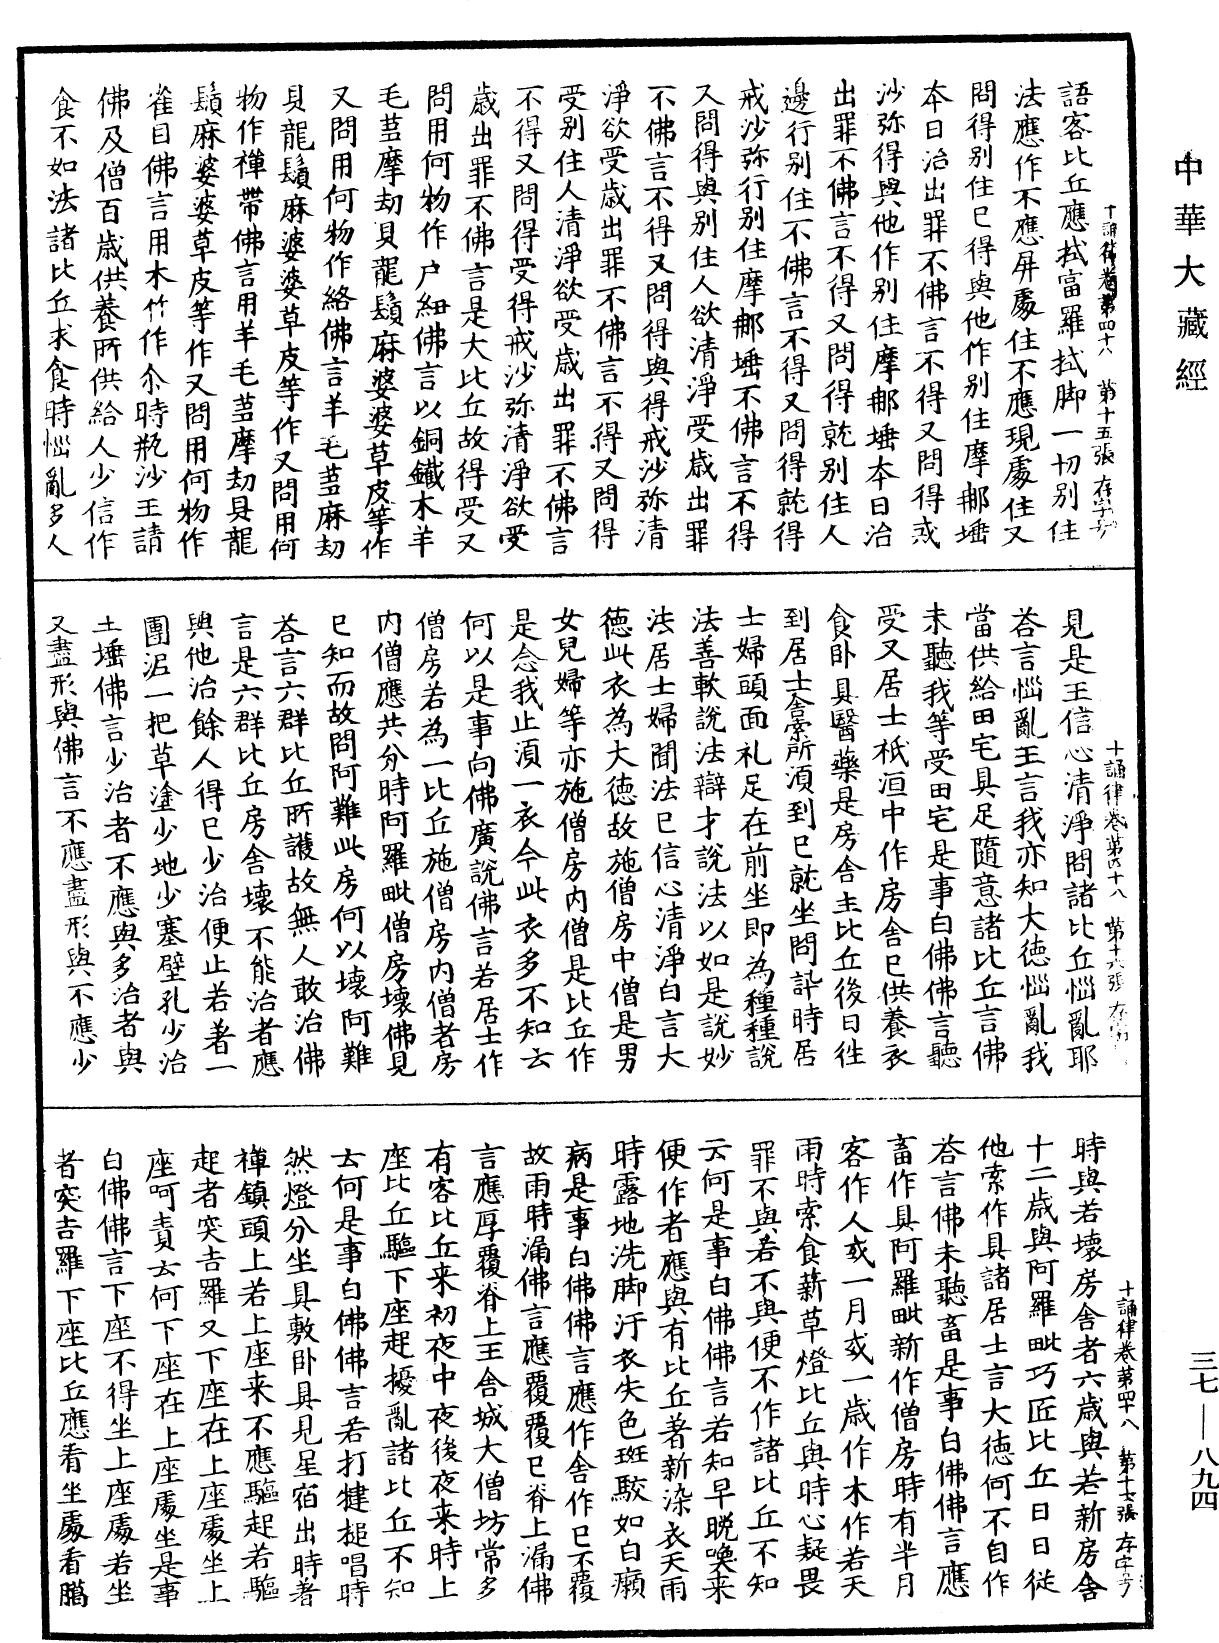 中華大藏經
十誦律卷第四十八 第十五張 存字号
語客比丘應拭富羅拭脚一切別住
法應作不應屏處住不應現處住又
問得別住已得與他作別住摩那埵
本日治出罪不佛言不得又問得戒
沙弥得與他作別住摩那埵本日治
出罪不佛言不得又問得就別住人
邊行別住不佛言不得又問得就得
戒沙弥行別住摩那埵不佛言不得
又問得與別住人欲清淨受歲出罪
不佛言不得又問得與得戒沙弥清
淨欲受歲出罪不佛言不得又問得
受別住人清淨欲受歲出罪不佛言
不得又問得受得戒沙弥清淨欲受
歲出罪不佛言是大比丘故得受又
問用何物作户紐佛言以銅鐵木羊
毛芻摩劫貝龍鬚麻婆婆草皮等作
又問用何物作絡佛言羊毛芻麻劫
貝龍鬚麻婆婆草皮等作又問用何
物作禪帶佛言用羊毛芻摩劫貝龍
鬚麻婆婆草皮等作又問用何物作
雀目佛言用木竹作尒時瓶沙王請
佛及僧百歲供養所供給人少信作
食不如法諸比丘求食時惱亂多人
十誦律卷第四十八 第十六張 存字
見是王信心清淨問諸比丘惱亂耶
荅言惱亂王言我亦知大德惱亂我
當供給田宅具足隨意諸比丘言佛
未聽我等受田宅是事白佛佛言聽
受又居士祇洹中作房舍已供養衣
食卧具醫藥是房舍主比丘後日往
到居士舍索所須到已就坐問訊時居
士婦頭面礼足在前坐即為種種說
法善軟說法辯才說法以如是說妙
法居士婦聞法已信心清淨白言大
德此衣為大德故施僧房中僧是男
女兒婦等亦施僧房內僧是比丘作
是念我止須一衣今此衣多不知云
何以是事向佛廣說佛言若居士作
僧房若為一比丘施僧房內僧者房
內僧應共分時阿羅毗僧房壞佛見
已知而故問阿難此房何以壞阿難
荅言六群比丘所護故無人敢治佛
言是六群比丘房舍壞不能治者應
與他治餘人得已少治便止若著一
團泥一把草塗少地少塞壁孔少治
土埵佛言少治者不應與多治者與
又盡形與佛言不應盡形與不應少
十誦律卷第四十八 第十七張 存字号
時與若壞房舍者六歲與若新房舍
十二歲與阿羅毗巧匠比丘日日從
他索作具諸居士言大德何不自作
荅言佛未聽畜是事白佛佛言應
畜作具阿羅毗新作僧房時有半月
客作人或一月或一歲作木作若天
雨時索食薪草燈比丘與時心疑畏
罪不與若不與便不作諸比丘不知
云何是事白佛佛言若知早晚喚来
便作者應與有比丘著新染衣天雨
時露地洗脚汙衣失色斑駁如白癩
病是事白佛佛言應作舍作已不覆
故雨時漏佛言應覆覆已脊上漏佛
言應厚覆脊上王舍城大僧坊常多
有客比丘来初夜中夜後夜来時上
座比丘驅下座起擾亂諸比丘不知
云何是事白佛佛言若打揵槌唱時
然燈分坐具敷卧具見星宿出時著
禪鎮頭上若上座来不應驅起若驅
起者突吉羅又下座在上座處坐上
座呵責云何下座在上座處坐是事
白佛佛言下座不得坐上座處若坐
者突吉羅下座比丘應看坐處看臈
三七—八九四